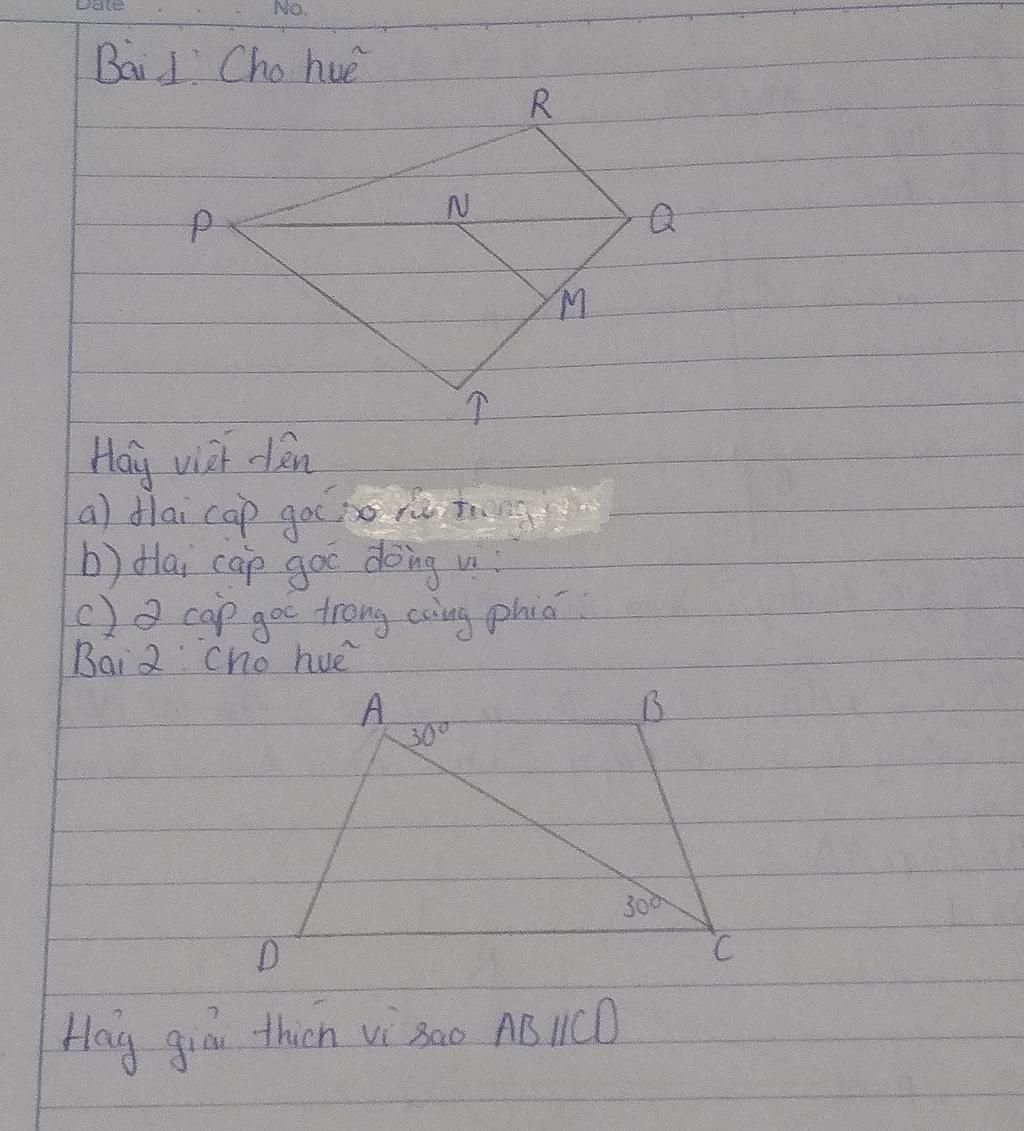 Date No.
Bài 1: Cho huẽ
R
P N Q
M
T
Hãy viết tên
a) Hai cặp góc so le trong
b) Hai cặp góc đồng vị:
c) 2 cặp góc trong cùng phía:
Bài 2: Cho huẽ
A B
30°
30°
D C
Hãy giải thích vì sao AB//CD